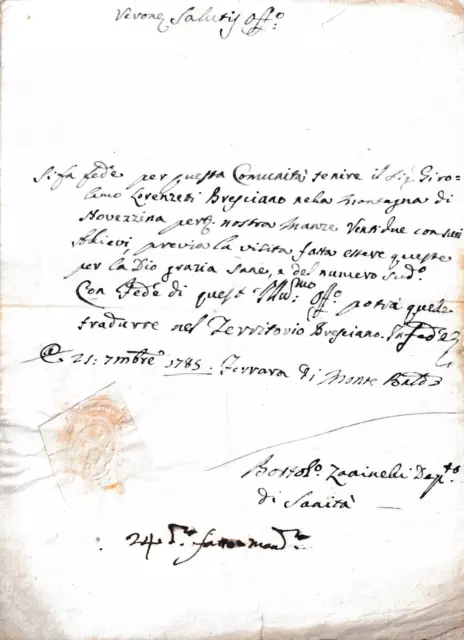 Veronę Salutis Off:º
Si fa fede per questa Comunità tenire il Sig: Giro-
lamo Lorenzeti Bresciano nela montagna di
Novezzina pertę nostra Manze Ventidue con suoi
Alievi previa la visita fatta essere queste
per la Dio grazia Sane, e del numero sud:º
Con Fede di quest: Off:º potrà quele
tradurre nel Territorio Bresciano. In fede
21: 7mbre 1785: Ferrara di Monte Baldo
Bortolº Zaninelli Depº
di Sanità
24 d:º fatto mand:º